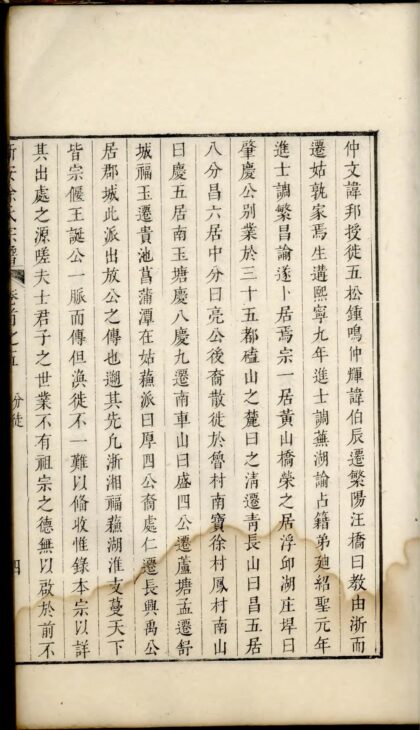 仲文諱邦授徙五松鍾鳴仲輝諱伯辰遷繁陽汪橋曰教由浙而
遷姑孰家焉生遘熙寧九年進士調蕪湖諭占籍弟廸紹聖元年
進士調繁昌諭遂卜居焉宗一居黄山橋榮之居浮邱湖庄垾曰
肇慶公别業於三十五都磕山之麓曰之淸遷靑長山曰昌五居
八分昌六居中分曰亮公後裔散徙於魯村南寶徐村鳳村南山
曰慶五居南玉塘慶八慶九遷南車山曰盛四公遷蘆塘孟遷舒
城福玉遷貴池菖蒲潭在姑蘓派曰厚四公裔處仁遷長興禹公
居郡城此派出放公之傳也遡其先凢浙湘福蘓湖淮支蔓天下
皆宗偃王誕公一脈而傳但渙徙不一難以偹收惟錄本宗以詳
其出處之源嗟夫士君子之世業不有祖宗之德無以啟於前不
新安徐氏宗譜 卷首之五 分徙 四